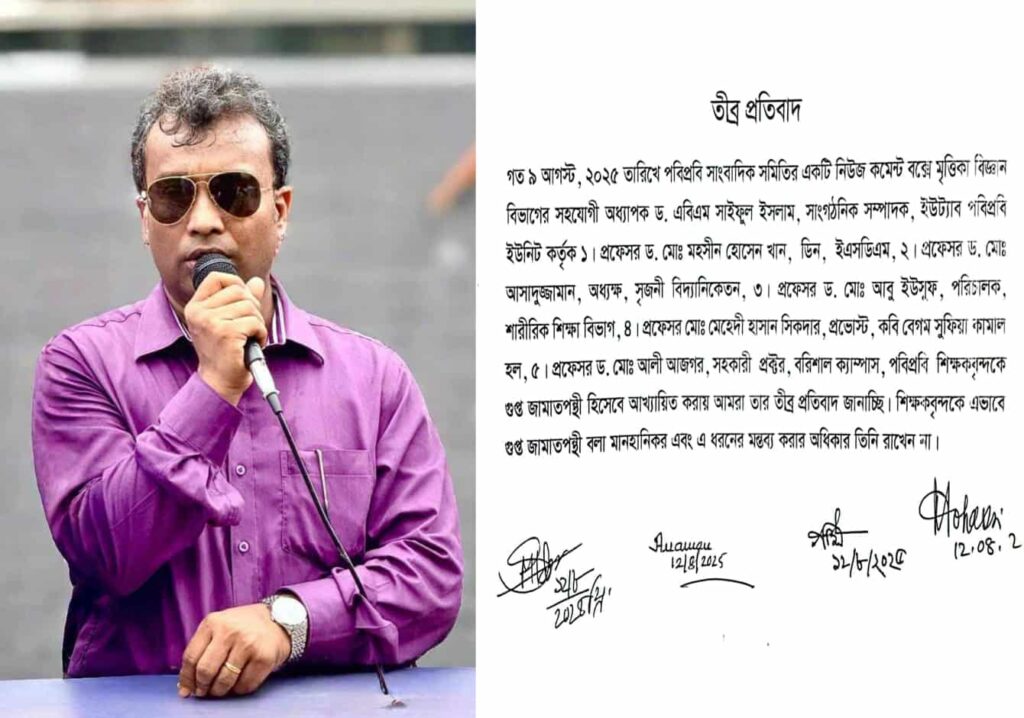 তীব্র প্রতিবাদ
গত ৯ আগস্ট, ২০২৫ তারিখে পবিপ্রবি সাংবাদিক সমিতির একটি নিউজ কমেন্ট বক্সে মৃত্তিকা বিজ্ঞান
বিভাগের সহযোগী অধ্যাপক ড. এবিএম সাইফুল ইসলাম, সাংগঠনিক সম্পাদক, ইউট্যাব পবিপ্রবি
ইউনিট কর্তৃক ১। প্রফেসর ড. মোঃ মহসীন হোসেন খান, ডিন, ইএসডিএম, ২। প্রফেসর ড. মোঃ
আসাদুজ্জামান, অধ্যক্ষ, সৃজনী বিদ্যানিকেতন, ৩। প্রফেসর ড. মোঃ আবু ইউসুফ, পরিচালক,
শারীরিক শিক্ষা বিভাগ, ৪। প্রফেসর মোঃ মেহেদী হাসান সিকদার, প্রভোস্ট, কবি বেগম সুফিয়া কামাল
হল, ৫। প্রফেসর ড. মোঃ আলী আজগর, সহকারী প্রক্টর, বরিশাল ক্যাম্পাস, পবিপ্রবি শিক্ষকবৃন্দকে
গুপ্ত জামাতপন্থী হিসেবে আখ্যায়িত করায় আমরা তার তীব্র প্রতিবাদ জানাচ্ছি। শিক্ষকবৃন্দকে এভাবে
গুপ্ত জামাতপন্থী বলা মানহানিকর এবং এ ধরনের মন্তব্য করার অধিকার তিনি রাখেন না।
12.08.2
12/8/2025
১২/৮/২০২৫
১২/৮